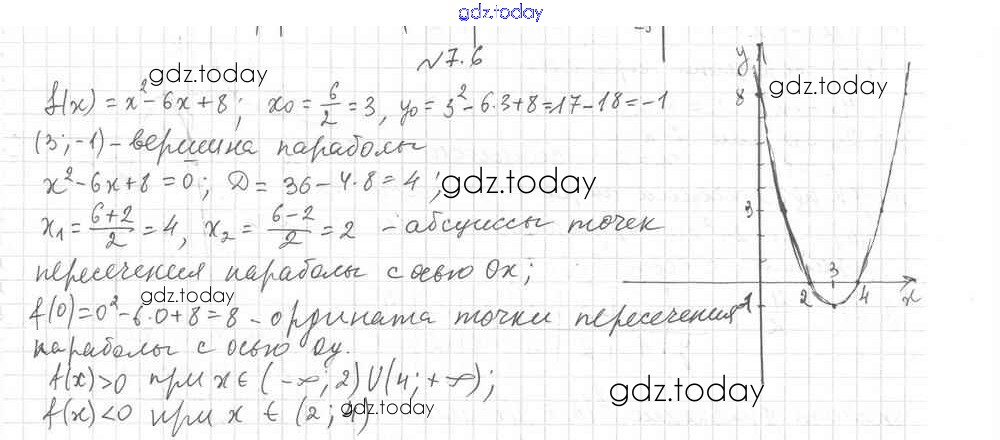 gdz.today
№7.6
gdz.today
f(x) = x² - 6x + 8; x₀ = 6/2 = 3, y₀ = 3² - 6·3 + 8 = 17 - 18 = -1
(3; -1) - вершина параболы
x² - 6x + 8 = 0; Д = 36 - 4·8 = 4; gdz.today
x₁ = (6+2)/2 = 4, x₂ = (6-2)/2 = 2 - абсциссы точек
пересечения параболы с осью Ox;
gdz.today
f(0) = 0² - 6·0 + 8 = 8 - ордината точки пересечения
параболы с осью Oy.
f(x) > 0 при x ∈ (-∞; 2) U (4; +∞);
f(x) < 0 при x ∈ (2; 4)
gdz.today
y
8
gdz.today
3
3
2
4
x
-1
gdz.today